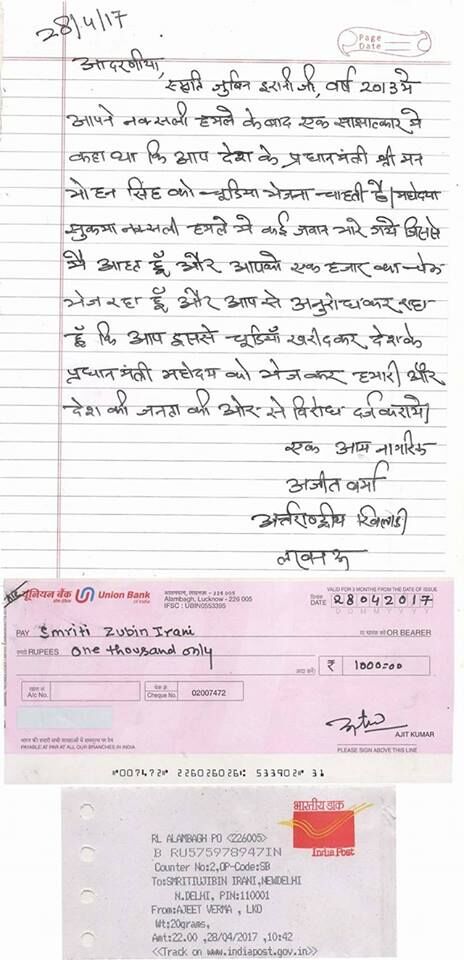 28/4/17
Page
Date
आदरणीया,
स्मृति जुबिन इरानी जी, वर्ष 2013 मे
आपने नक्सली हमले के बाद एक साक्षात्कार मे
कहा था कि आप देश के प्रधानमंत्री श्री मन
मोहन सिंह को चूडिया भेजना चाहती है। महोदया
सुकमा नक्सली हमले मे कई जवान मारे गये जिससे
मै आहत हूँ और आपको एक हजार का चेक
भेज रहा हूँ और आप से अनुरोध कर रहा
हूँ कि आप इससे चूडियाँ खरीदकर देश के
प्रधानमंत्री महोदय को भेजकर हमारी और
देश की जनता की ओर से विरोध दर्ज कराये।
एक आम नागरिक
अजीत वर्मा
अर्न्तराष्ट्रीय खिलाडी
लखनऊ
यूनियन बैंक Union Bank
of India
आलमबाग, लखनऊ - 226 005
Alambagh, Lucknow - 226 005
IFSC : UBIN0553395
VALID FOR 3 MONTHS FROM THE DATE OF ISSUE
दिनांक
DATE 28042017
D D M M Y Y Y Y
PAY Smriti Zubin Irani या धारक को OR BEARER
रुपये RUPEES One thousand only
अदा करें ₹ 1000=00
खाता सं.
A/c No.
चेक सं.
Cheque No. 02007472
PAYABLE AT PAR AT ALL OUR BRANCHES IN INDIA
AJIT KUMAR
PLEASE SIGN ABOVE THIS LINE
भारतीय डाक
India Post
RL ALAMBAGH PO <226005>
B RU575978947IN
Counter No:2,OP-Code:SB
To:SMRITIUJIBIN IRANI,NEWDELHI
N.DELHI, PIN:110001
From:AJEET VERMA , LKO
Wt:20grams,
Amt:22.00 ,28/04/2017 ,10:42
<<Track on www.indiapost.gov.in>>